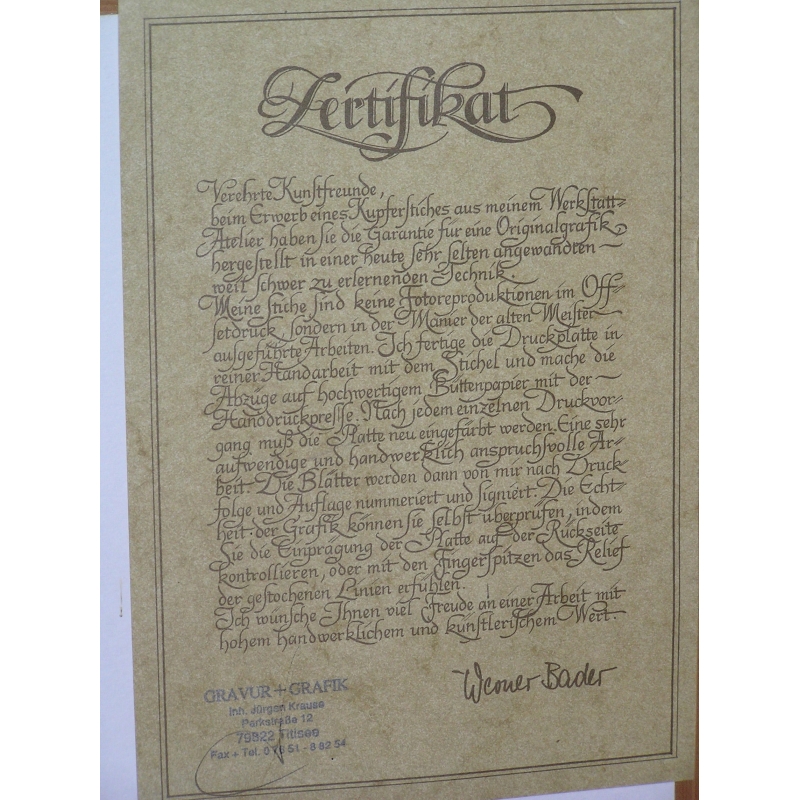 Zertifikat
Verehrte Kunstfreunde,
beim Erwerb eines Kupferstiches aus meinem Werkstatt=
Atelier haben sie die Garantie für eine Originalgrafik,
hergestellt in einer heute sehr selten angewandten
weil schwer zu erlernenden Technik.
Meine Stiche sind keine Fotoreproduktionen im Off=
setdruck, sondern in der Manier der alten Meister
ausgeführte Arbeiten. Ich fertige die Druckplatte in
reiner Handarbeit mit dem Stichel und mache die
Abzüge auf hochwertigem Büttenpapier mit der
Handdruckpresse. Nach jedem einzelnen Druckvor=
gang muß die Platte neu eingefärbt werden. Eine sehr
aufwendige und handwerklich anspruchsvolle Ar=
beit. Die Blätter werden dann von mir nach Druck
folge und Auflage nummeriert und signiert. Die Echt=
heit der Grafik können sie selbst überprüfen, indem
Sie die Einprägung der Platte auf der Rückseite
kontrollieren, oder mit den Fingerspitzen das Relief
der gestochenen Linien erfühlen.
Ich wünsche Ihnen viel Freude an einer Arbeit mit
hohem handwerklichem und künstlerischem Wert.
Werner Bader
GRAVUR + GRAFIK
Inh. Jürgen Krause
Parkstraße 12
79822 Titisee
Fax + Tel. 0 76 51 - 8 82 54